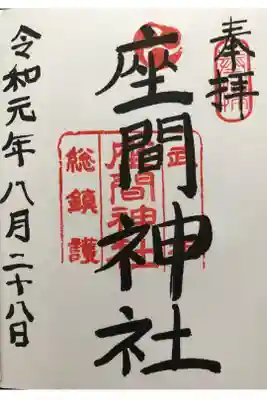 奉拝
座間神社
令和元年八月二十八日
座間神社
総鎮護